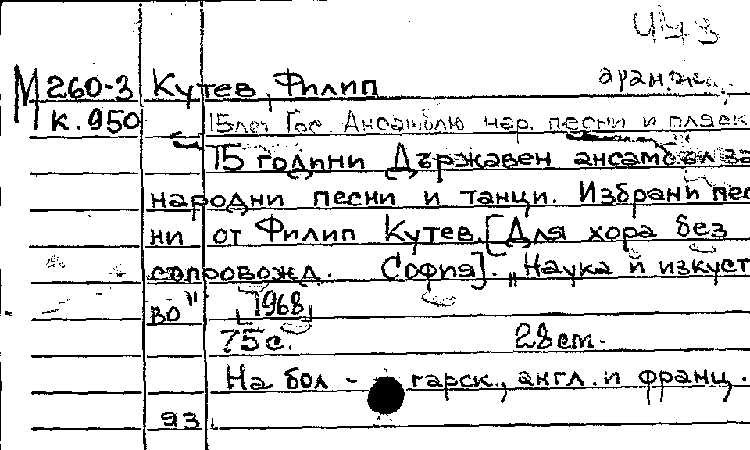 443
М 260-3 Кутев, Филип аранж.
К. 950 15 лет Гос Ансамблю нар. песни и пляск
15 години Държавен ансамбъл за
народни песни и танци. Избрани пес
ни от Филип Кутев. [Для хора без
сопровожд. София]. „Наука и изкуст
во" [1968]
75 с. 28 см.
На бол - гарск., англ. и франц.
93